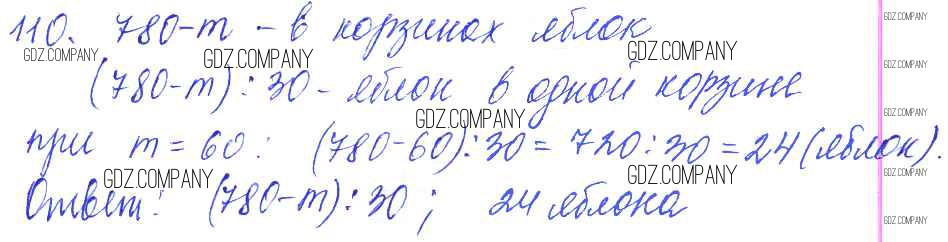 110. 780-m - в корзинах яблок
(780-m):30 - яблок в одной корзине
при m = 60: (780-60):30 = 720:30 = 24 (яблок).
Ответ: (780-m):30; 24 яблока
GDZ.COMPANY
GDZ.COMPANY
GDZ.COMPANY
GDZ.COMPANY
GDZ.COMPANY
GDZ.COMPANY
GDZ.COMPANY
GDZ.COMPANY
GDZ.COMPANY
GDZ.COMPANY
GDZ.COMPANY